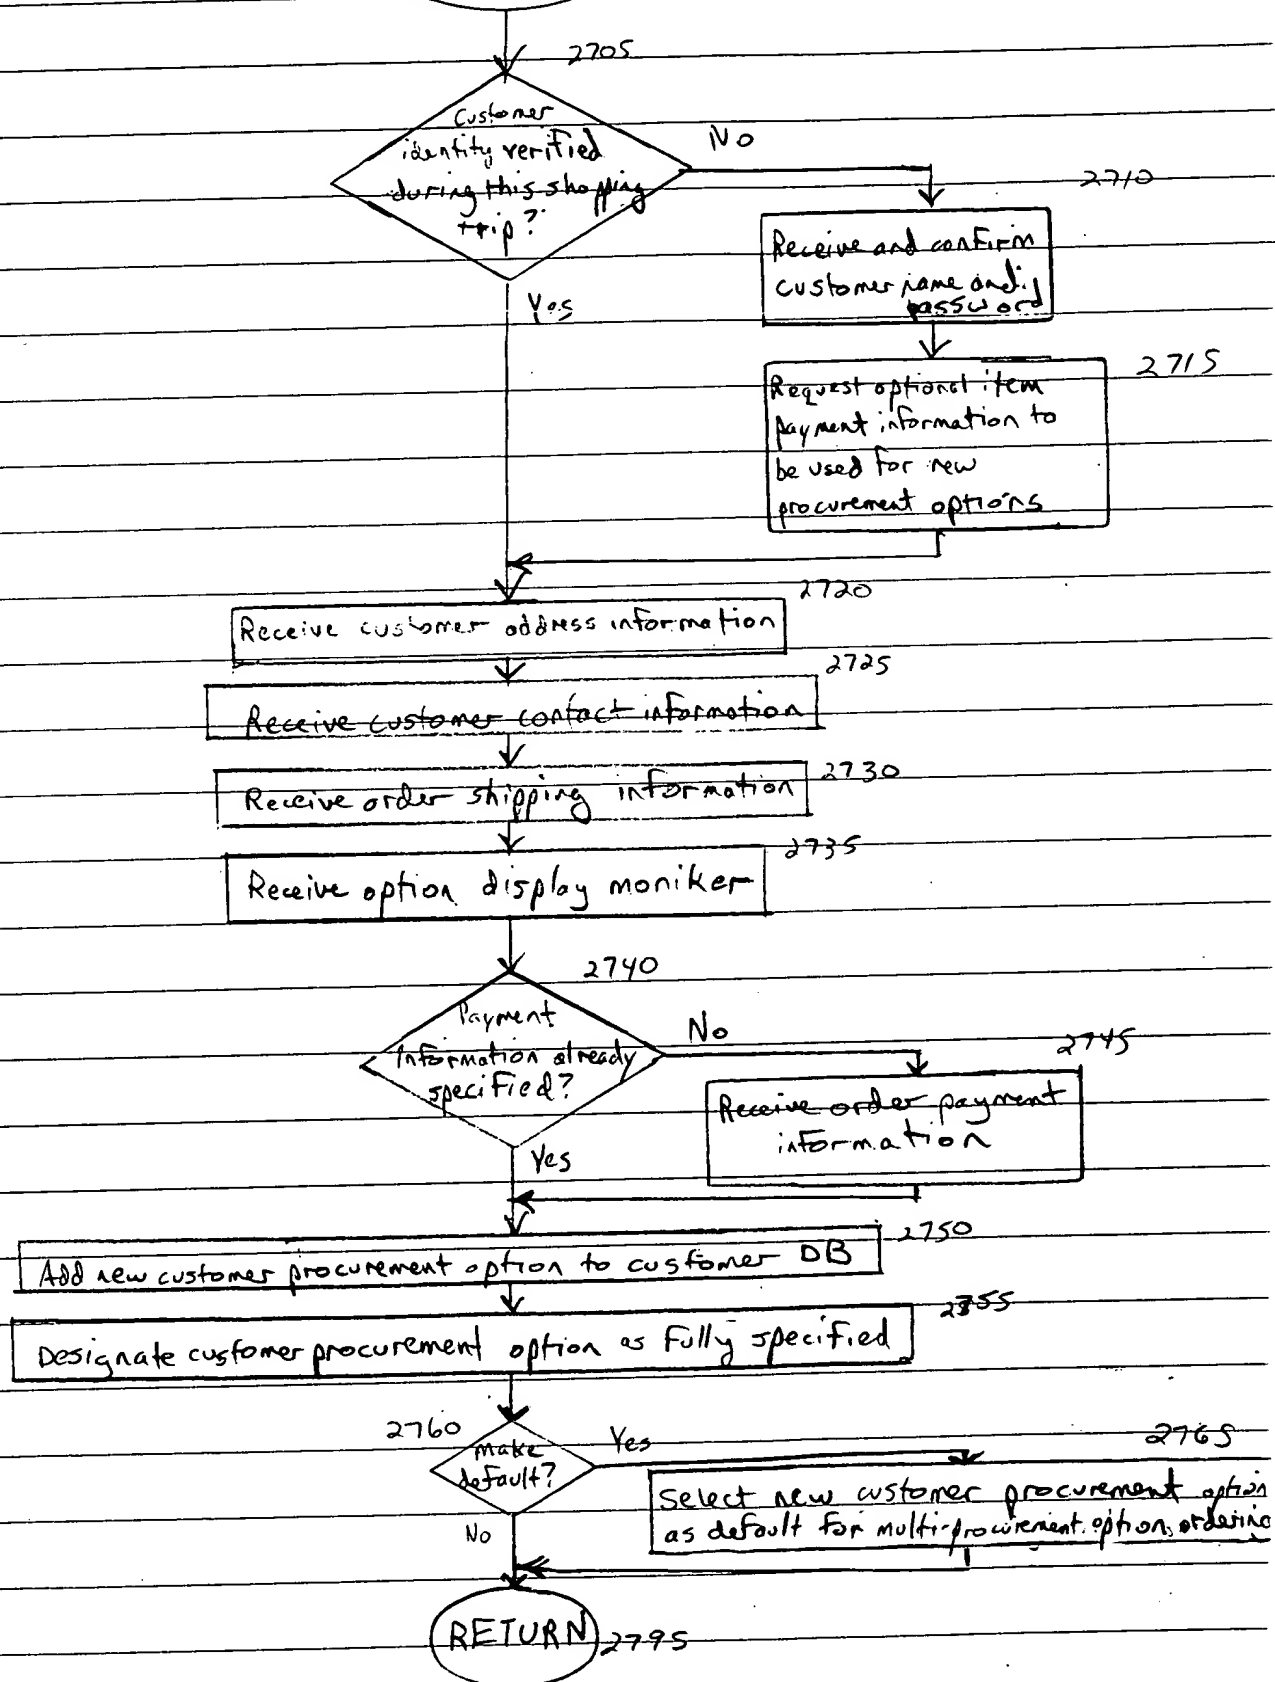 2705
Customer
identity verified
during this shopping
trip?
No
Yes
2710
Receive and confirm
customer name and
password
2715
Request optional item
payment information to
be used for new
procurement options
2720
Receive customer address information
2725
Receive customer contact information
2730
Receive order shipping information
2735
Receive option display moniker
2740
Payment
information already
specified?
No
Yes
2745
Receive order payment
information
2750
Add new customer procurement option to customer DB
2755
Designate customer procurement option as fully specified
2760
make
default?
Yes
No
2765
Select new customer procurement option
as default for multi-procurement option ordering
RETURN
2795